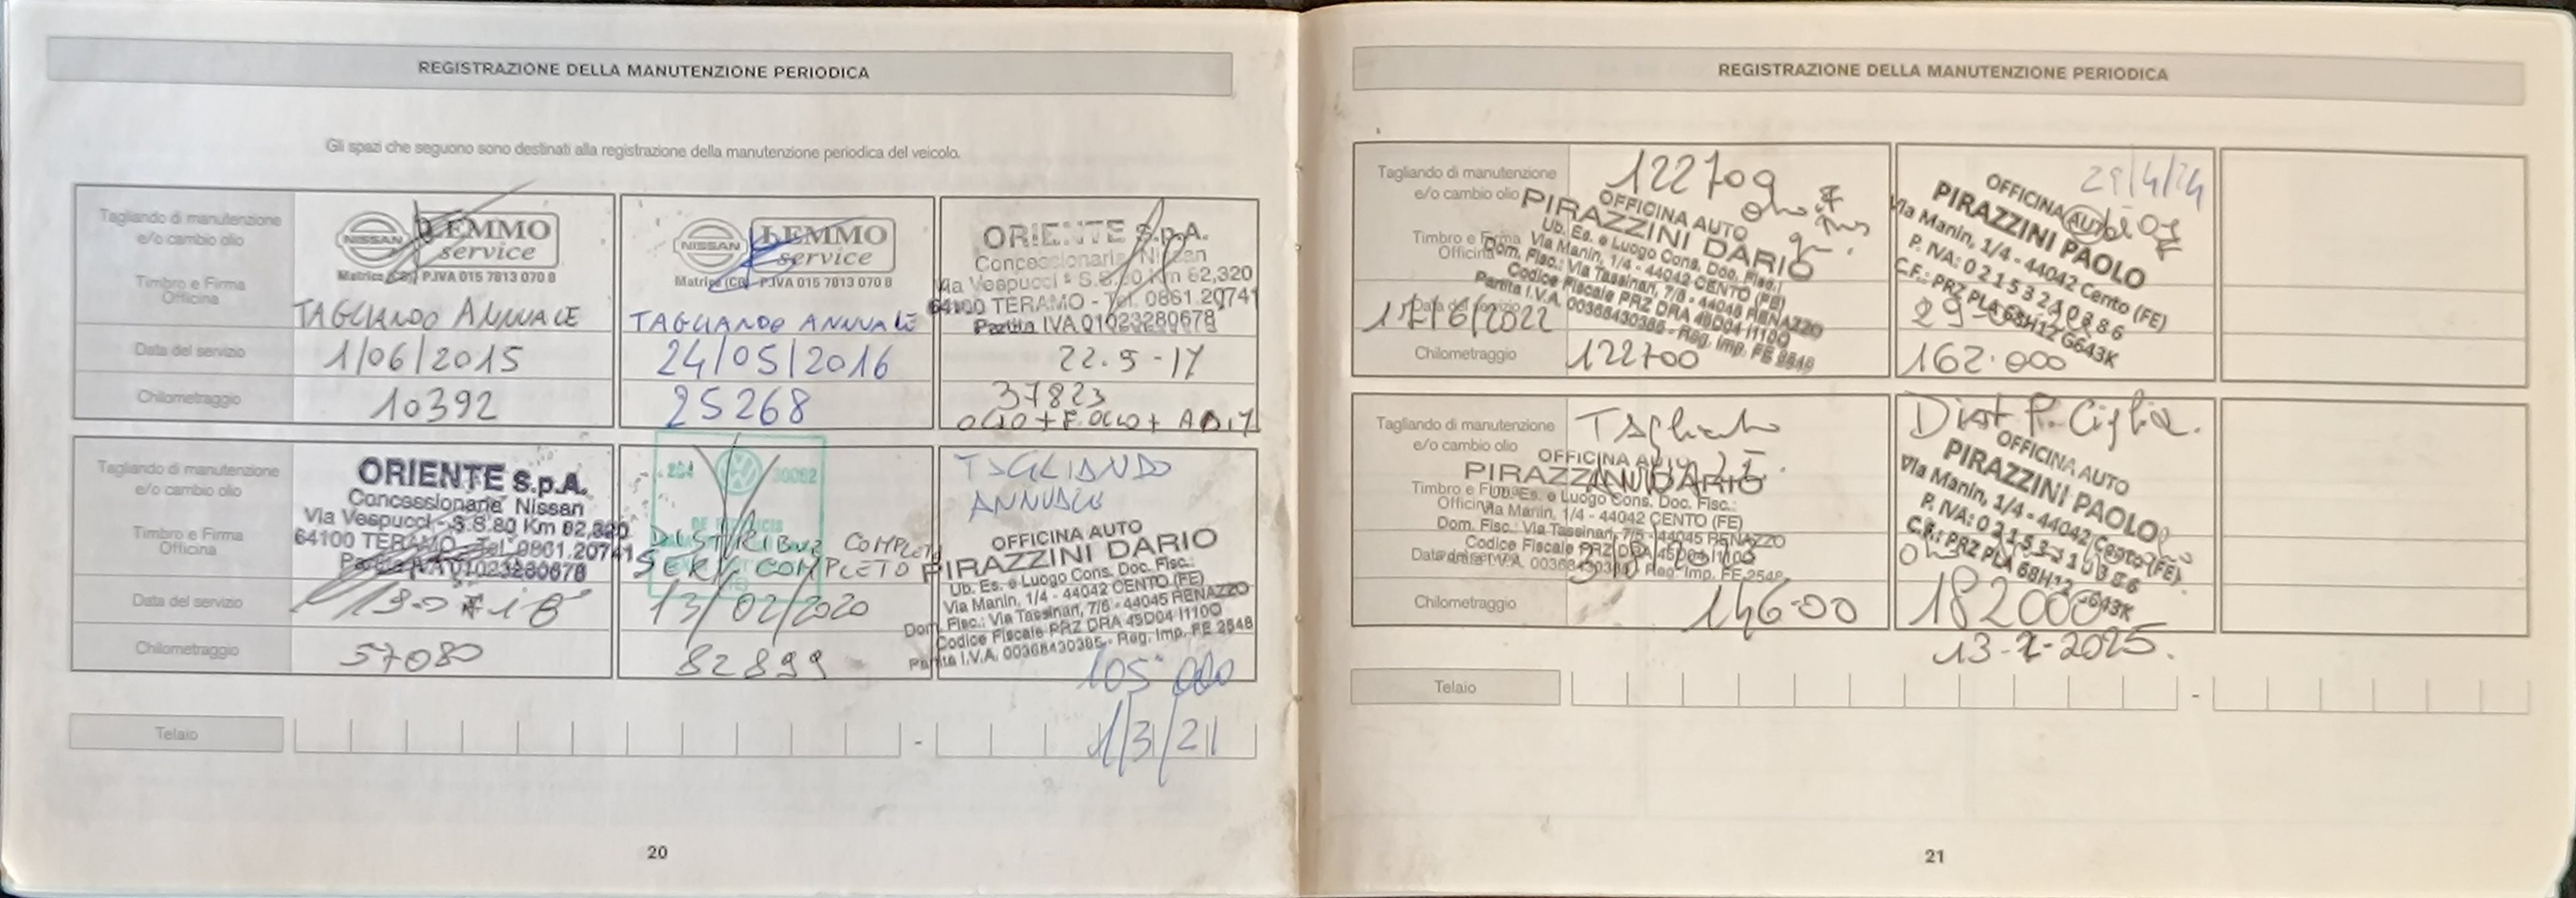 REGISTRAZIONE DELLA MANUTENZIONE PERIODICA
Gli spazi che seguono sono destinati alla registrazione della manutenzione periodica del veicolo.
Tagliando di manutenzione
e/o cambio olio
Timbro e Firma
Officina
Data del servizio
Chilometraggio
NISSAN LEMMO
service
Matrice (CB) P.IVA 015 7813 070 8
TAGLIANDO ANNUALE
1/06/2015
10392
NISSAN LEMMO
service
Matrice (CB) P.IVA 015 7813 070 8
TAGLIANDO ANNUALE
24/05/2016
25268
ORIENTE S.p.A.
Concessionaria Nissan
Via Vespucci - S.S.80 Km 82,320
64100 TERAMO - Tel. 0861.20741
Partita IVA 01023280678
22.5-17
37823
OLIO + F. OLIO +
Tagliando di manutenzione
e/o cambio olio
Timbro e Firma
Officina
Data del servizio
Chilometraggio
ORIENTE S.p.A.
Concessionaria Nissan
Via Vespucci - S.S.80 Km 82,320
64100 TERAMO - Tel. 0861.20741
Partita IVA 01023280678
57080
DISTRIBUZ COMPLETO
SERV COMPLETO
13/02/2020
82899
TAGLIANDO
ANNUALE
OFFICINA AUTO
PIRAZZINI DARIO
Ub. Es. e Luogo Cons. Doc. Fisc.:
Via Manin, 1/4 - 44042 CENTO (FE)
Dom. Fisc.: Via Tassinari, 7/5 - 44045 RENAZZO
Codice Fiscale PRZ DRA 45D04 I110O
Partita I.V.A. 00368430385 - Reg. Imp. FE 2548
105.000
1/3/21
Telaio
-
20
REGISTRAZIONE DELLA MANUTENZIONE PERIODICA
Tagliando di manutenzione
e/o cambio olio
Timbro e Firma
Officina
Chilometraggio
122709
OFFICINA AUTO
PIRAZZINI DARIO
Ub. Es. e Luogo Cons. Doc. Fisc.:
Via Manin, 1/4 - 44042 CENTO (FE)
Dom. Fisc.: Via Tassinari, 7/5 - 44045 RENAZZO
Codice Fiscale PRZ DRA 45D04 I110O
Partita I.V.A. 00368430385 - Reg. Imp. FE 2548
17/6/2022
122700
29/4/24
OFFICINA AUTO
PIRAZZINI PAOLO
Via Manin, 1/4 - 44042 Cento (FE)
P. IVA: 02153210386
C.F.: PRZ PLA 68H12 G643K
162.000
Tagliando di manutenzione
e/o cambio olio
Timbro e Firma
Officina
Chilometraggio
OFFICINA AUTO
PIRAZZINI DARIO
Ub. Es. e Luogo Cons. Doc. Fisc.:
Via Manin, 1/4 - 44042 CENTO (FE)
Dom. Fisc.: Via Tassinari, 7/5 - 44045 RENAZZO
Codice Fiscale PRZ DRA 45D04 I110O
Reg. Imp. FE 2548
14600
OFFICINA AUTO
PIRAZZINI PAOLO
Via Manin, 1/4 - 44042 Cento (FE)
P. IVA: 02153210386
C.F.: PRZ PLA 68H12 G643K
182000
Telaio
-
21